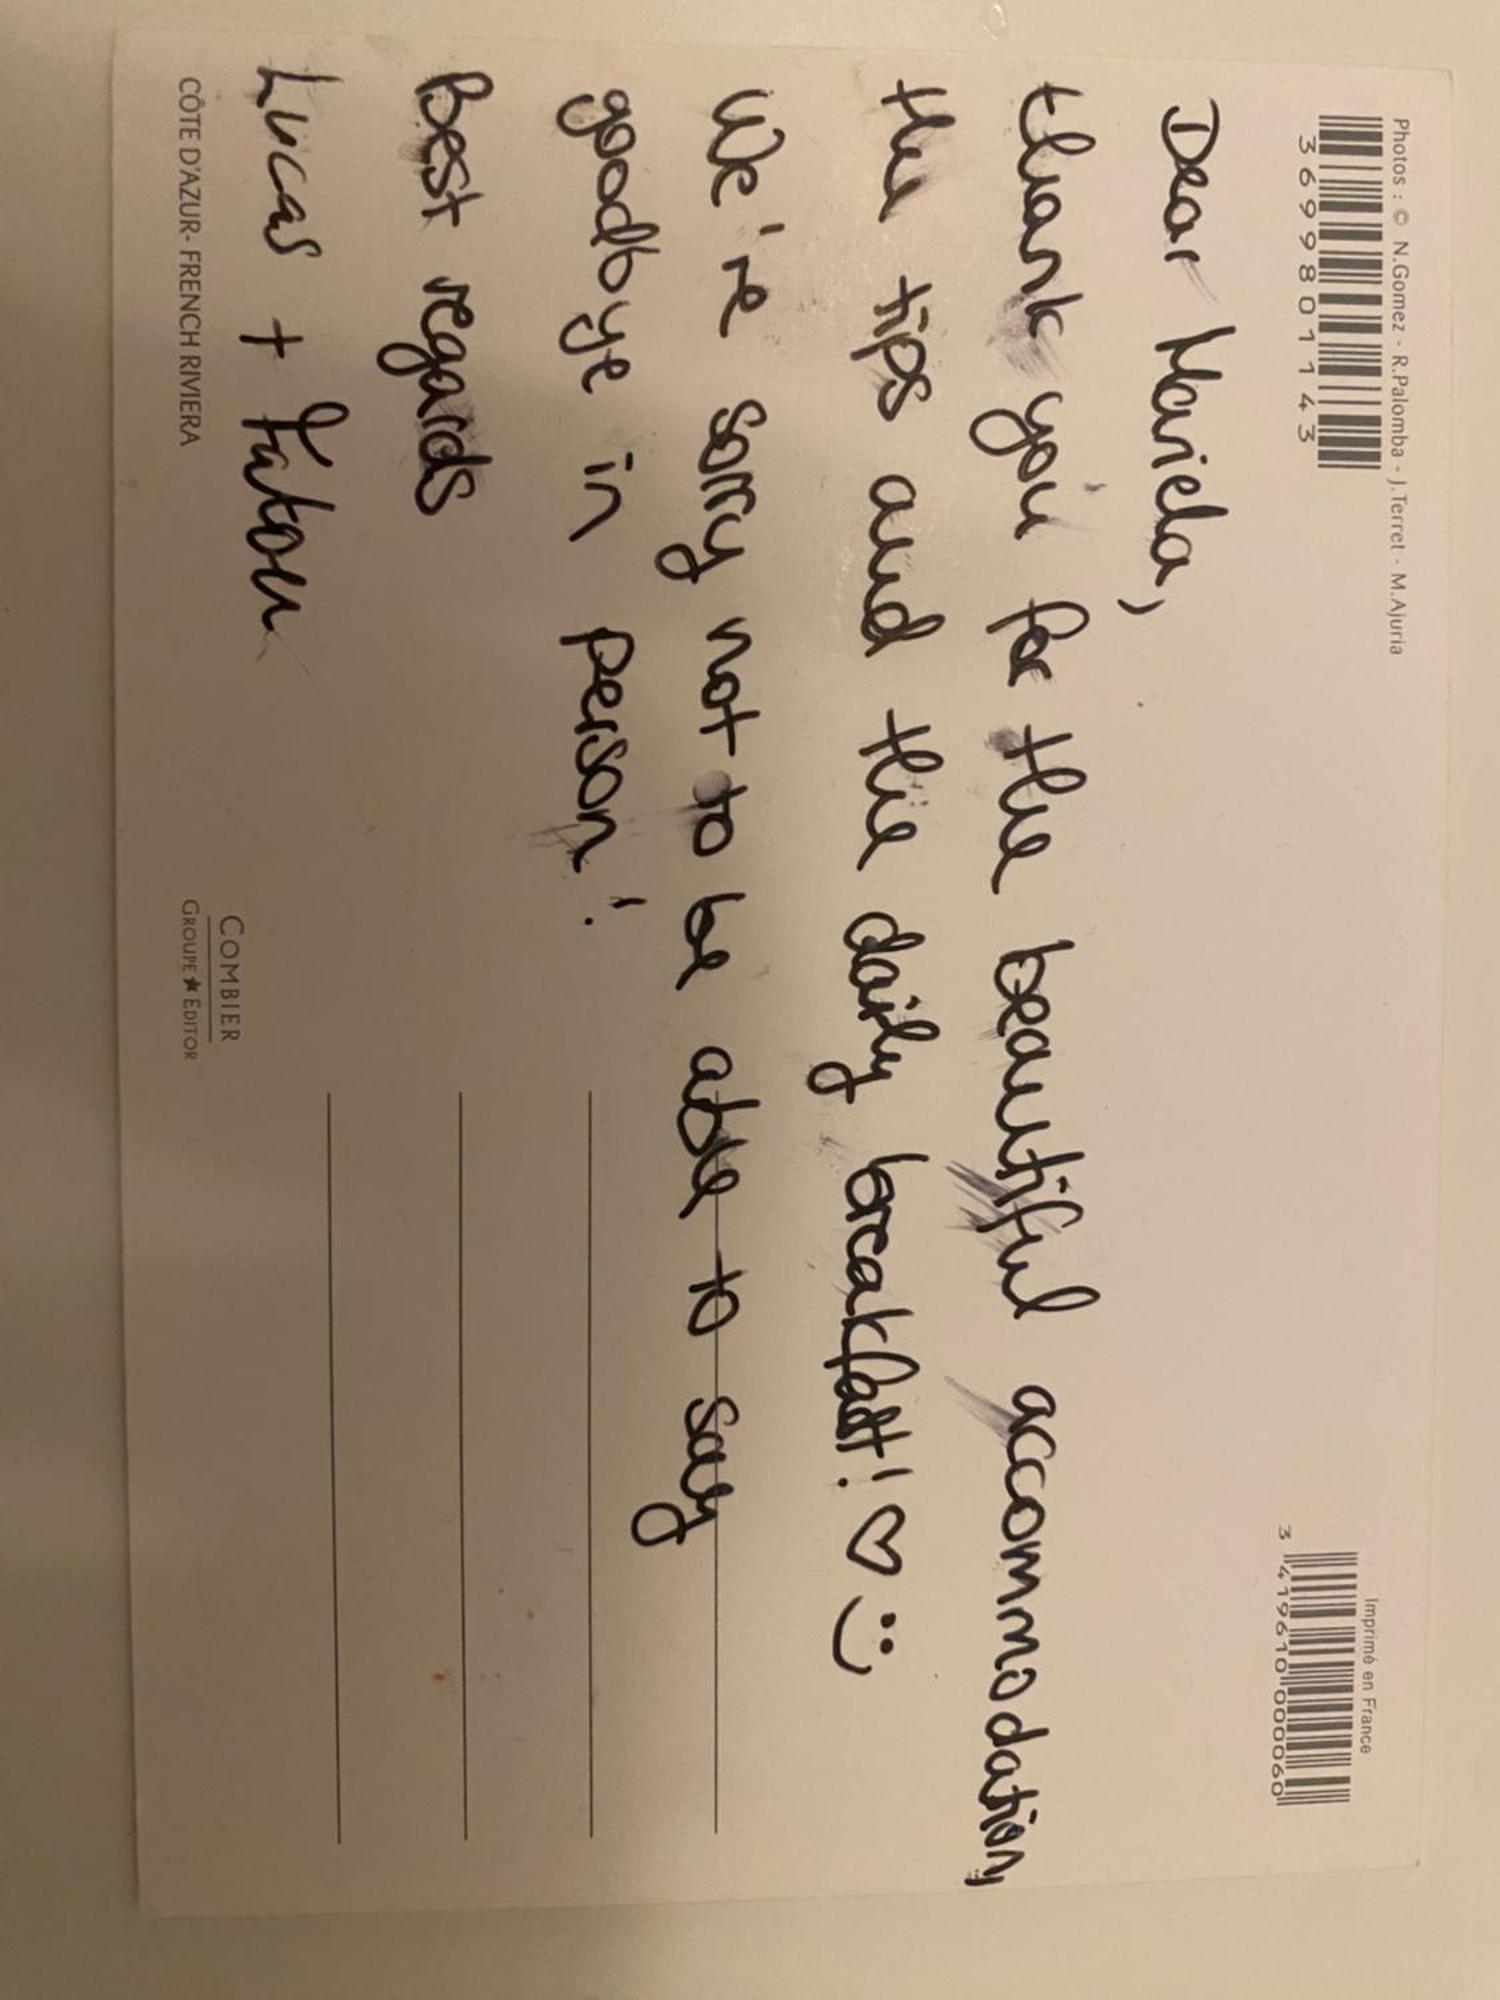 Photos : © N.Gomez - R.Palomba - J.Terret - M.Ajuria
3699801143
Imprimé en France
3 419610 000060
Dear Mariela,
thank you for the beautiful accommodation,
the tips and the daily breakfast! ♡ :)
We're sorry not to be able to say
goodbye in person!
Best regards
Lucas + Fatou
CÔTE D'AZUR- FRENCH RIVIERA
COMBIER
GROUPE★EDITOR